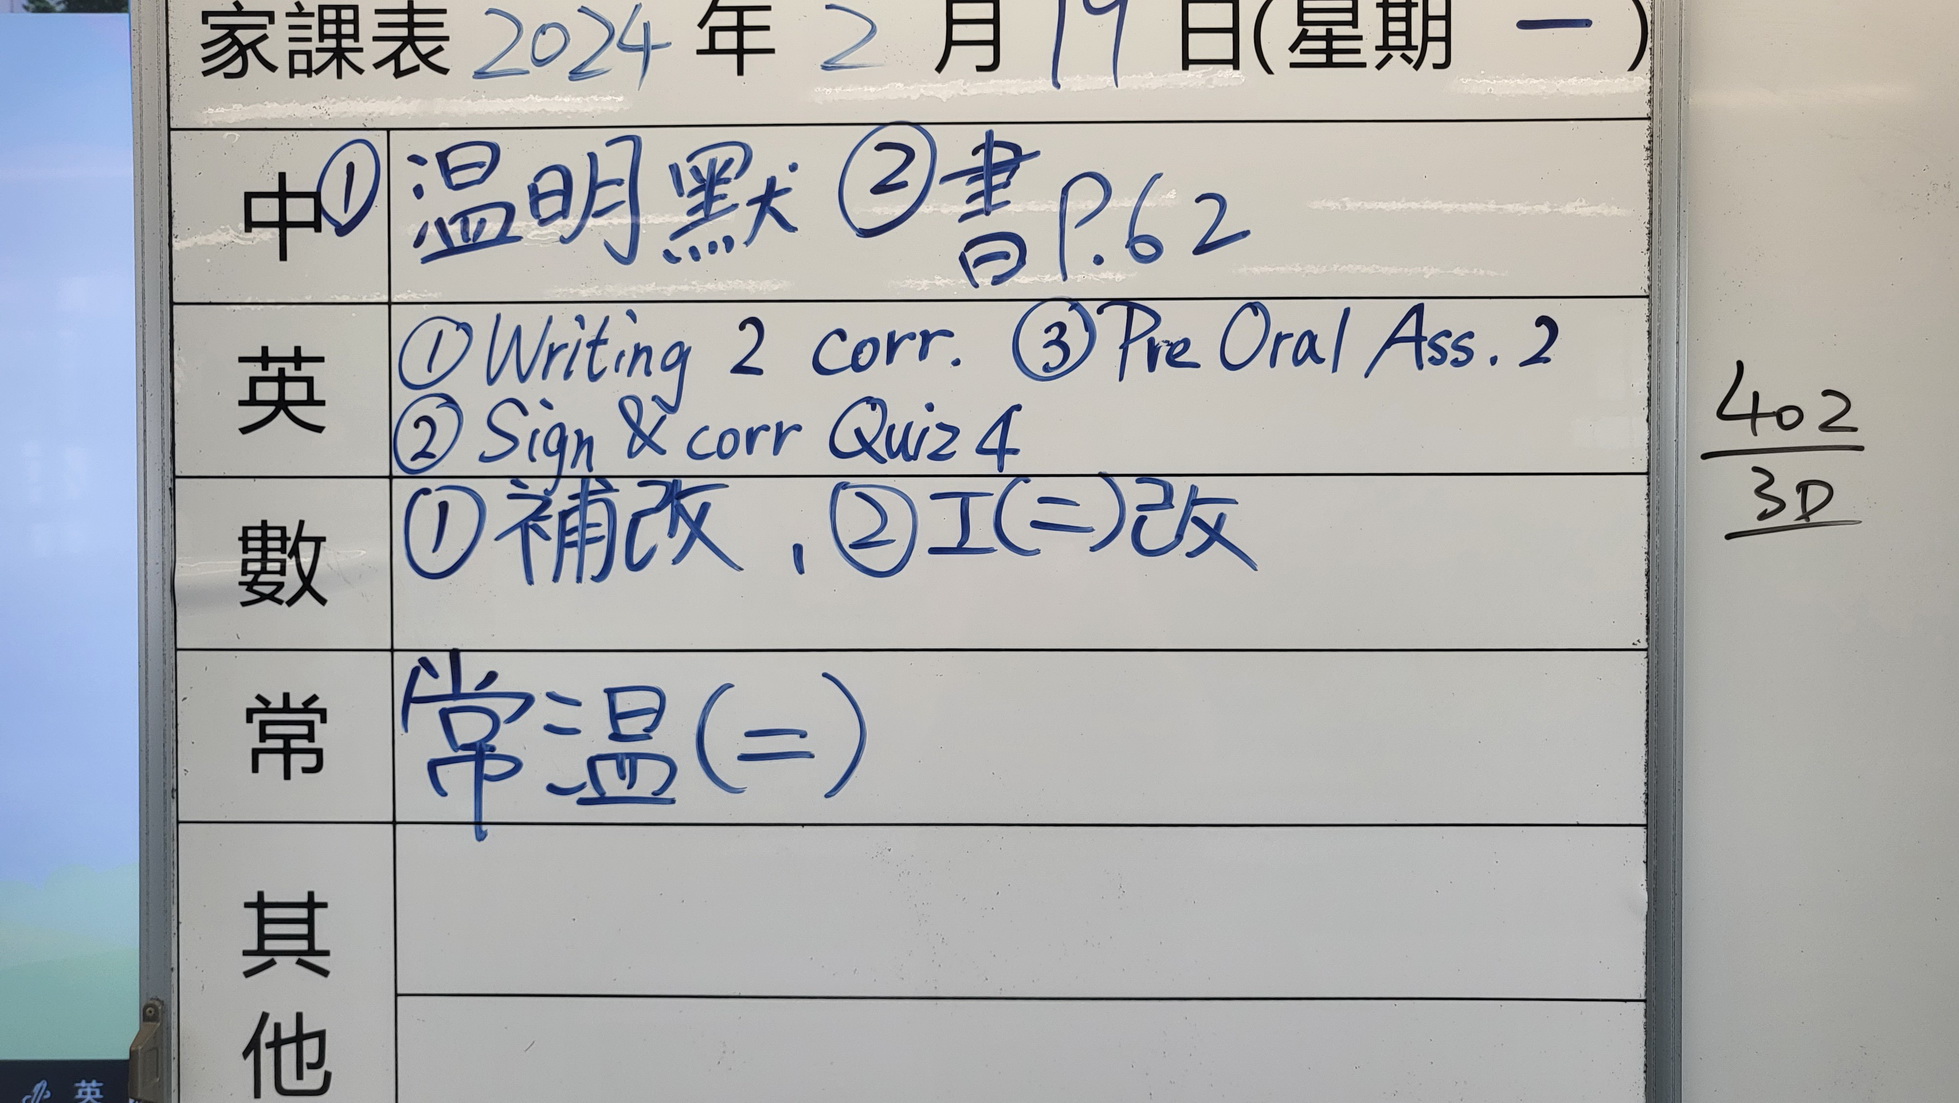 家課表 2024 年 2 月 19 日(星期 一 )
中 ① 温明默 ② 書 P.62
英 ① Writing 2 corr. ③ Pre Oral Ass. 2
② Sign & corr Quiz 4
數 ① 補改、② 工(二)改
常 常温(二)
其他
402
3D
英